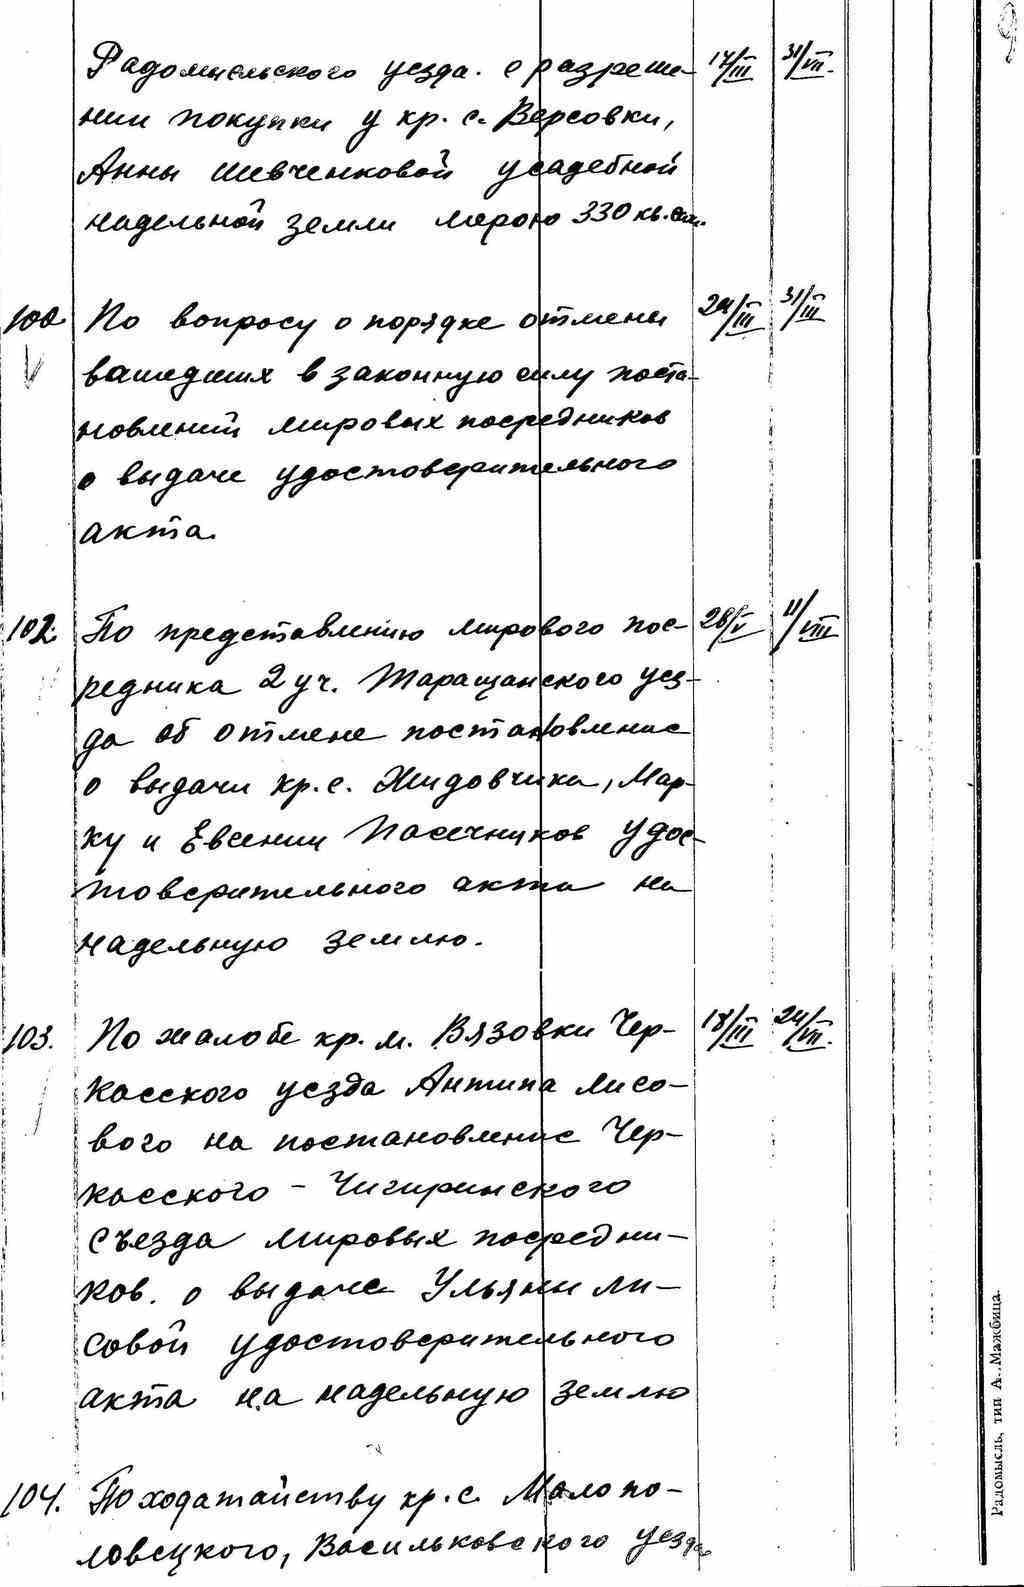 Радомысльского уезда. о разреше- 17/III 31/VII.
нии покупки у кр. с. Версовки,
Анны Шевченковой усадебной
надельной земли мерою 330 кв. саж.
100 По вопросу о порядке отмены 24/III 31/III
вашедших в законную силу поста-
новлений мировых посредников
о выдаче удостоверительного
акта.
102. По представлению мирового пос- 28/V 11/VIII
редника 2 уч. Таращанского уез-
да об отмене постановление
о выдачи кр. с. Жидовчика, Мар-
ку и Евсении Пасечников удос-
товерительного акта на
надельную землю.
103. По жалобе кр. м. Вязовки Чер- 18/III 24/VII.
касского уезда Антипа Лисо-
вого на постановление Чер-
касского - Чигиринского
съезда мировых посредни-
ков. о выдаче Ульяни Ли-
совой удостоверительного
акта на надельную землю
104. По ходатайству кр. с. Малопо-
ловецкого, Васильковского уезда
Радомысль, тип А. Мажбица.